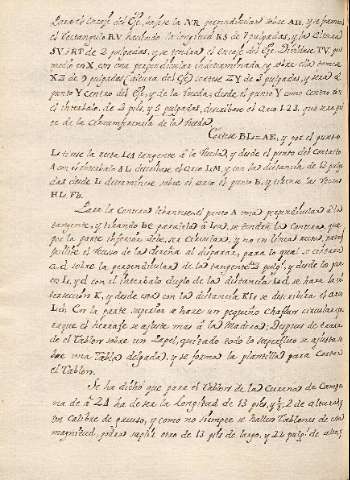 Para el encaje del Eje, bajese la NR perpendicular sobre AH, y se forme
el Rectangulo RV haciendo la longitud RS de 7 pulgadas, y las alturas
SV, RT de 2 pulgadas, y se tendra el encaje del Eje. Dividase TV, por
medio en X con una perpendicular indeterminada, y sobre ella tomese
XZ de 9 pulgadas altura del Eje, cortese ZY de 3 pulgadas, y será el
punto Y centro del Eje, y de la Rueda, desde el punto Y como centro con
el intervalo de 2 pies, y 5 pulgadas, describase el Arco 1.2.3. que sea par
te de la Circunferencia de las Ruedas
Cortese BL=AE, y por el punto
L tirese la recta LA tangente á la Rueda, y desde el punto del contacto
A con el intervalo AL describase el arco LM, y con las distancias de 13 pulga
das desde L determinese sobre el arco el punto B, y tirense las rectas
HL, FB.
Para la Contera levantese al punto A una perpendicular á la
tangente, y tirando BE paralela á LA, se tendrá la contera que
por la parte inferior debe ser circular, y no en linea recta, para
facilitar el recurso de las Gracha al disparar, para lo qual se cortará
a.d sobre la perpendicular de la tangente pulgs. y desde los pun
tos L, y d con el intervalo duplo de la distancia Ld, se hará la in
terseccion K, y desde este con la distancia KL se describirá el arco
Ldh. Con la parte superior se hace un pequeño Chaflan circular pa
ra que el herraje se ajuste mas á la Madera: Despues de traza
do el Tablon sobre un Papel, quitado todo lo superfluo se ajusta so
bre una Tabla delgada, y se forma la plantilla para cortar
el Tablon.
Se ha dicho que para el Tablon de la Cureña de Campa
ña de á 24 ha de ser la Longitud de 13 pies, y 2 de altura, y
un calibre de grueso, y como no siempre se hallan Tablones de esta
magnitud, podrá suplir otro de 13 pies de largo, y 22 pulgs. de alto,